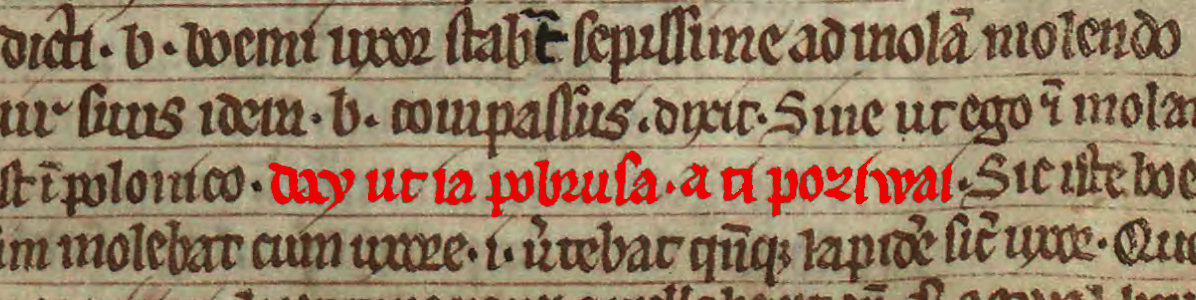 dicti · b · boemi uxor stabāt sepissime ad molā molendo
ur suus idem · b · compassus · dixit · Sine ut ego ī mola
st ī polonico · day ut ia pobrusa · a ti poziwai · Sic iste boe
im molebat cum uxore · i · ūtebat qn̄qꝫ lapidē sic̄ uxor · Que